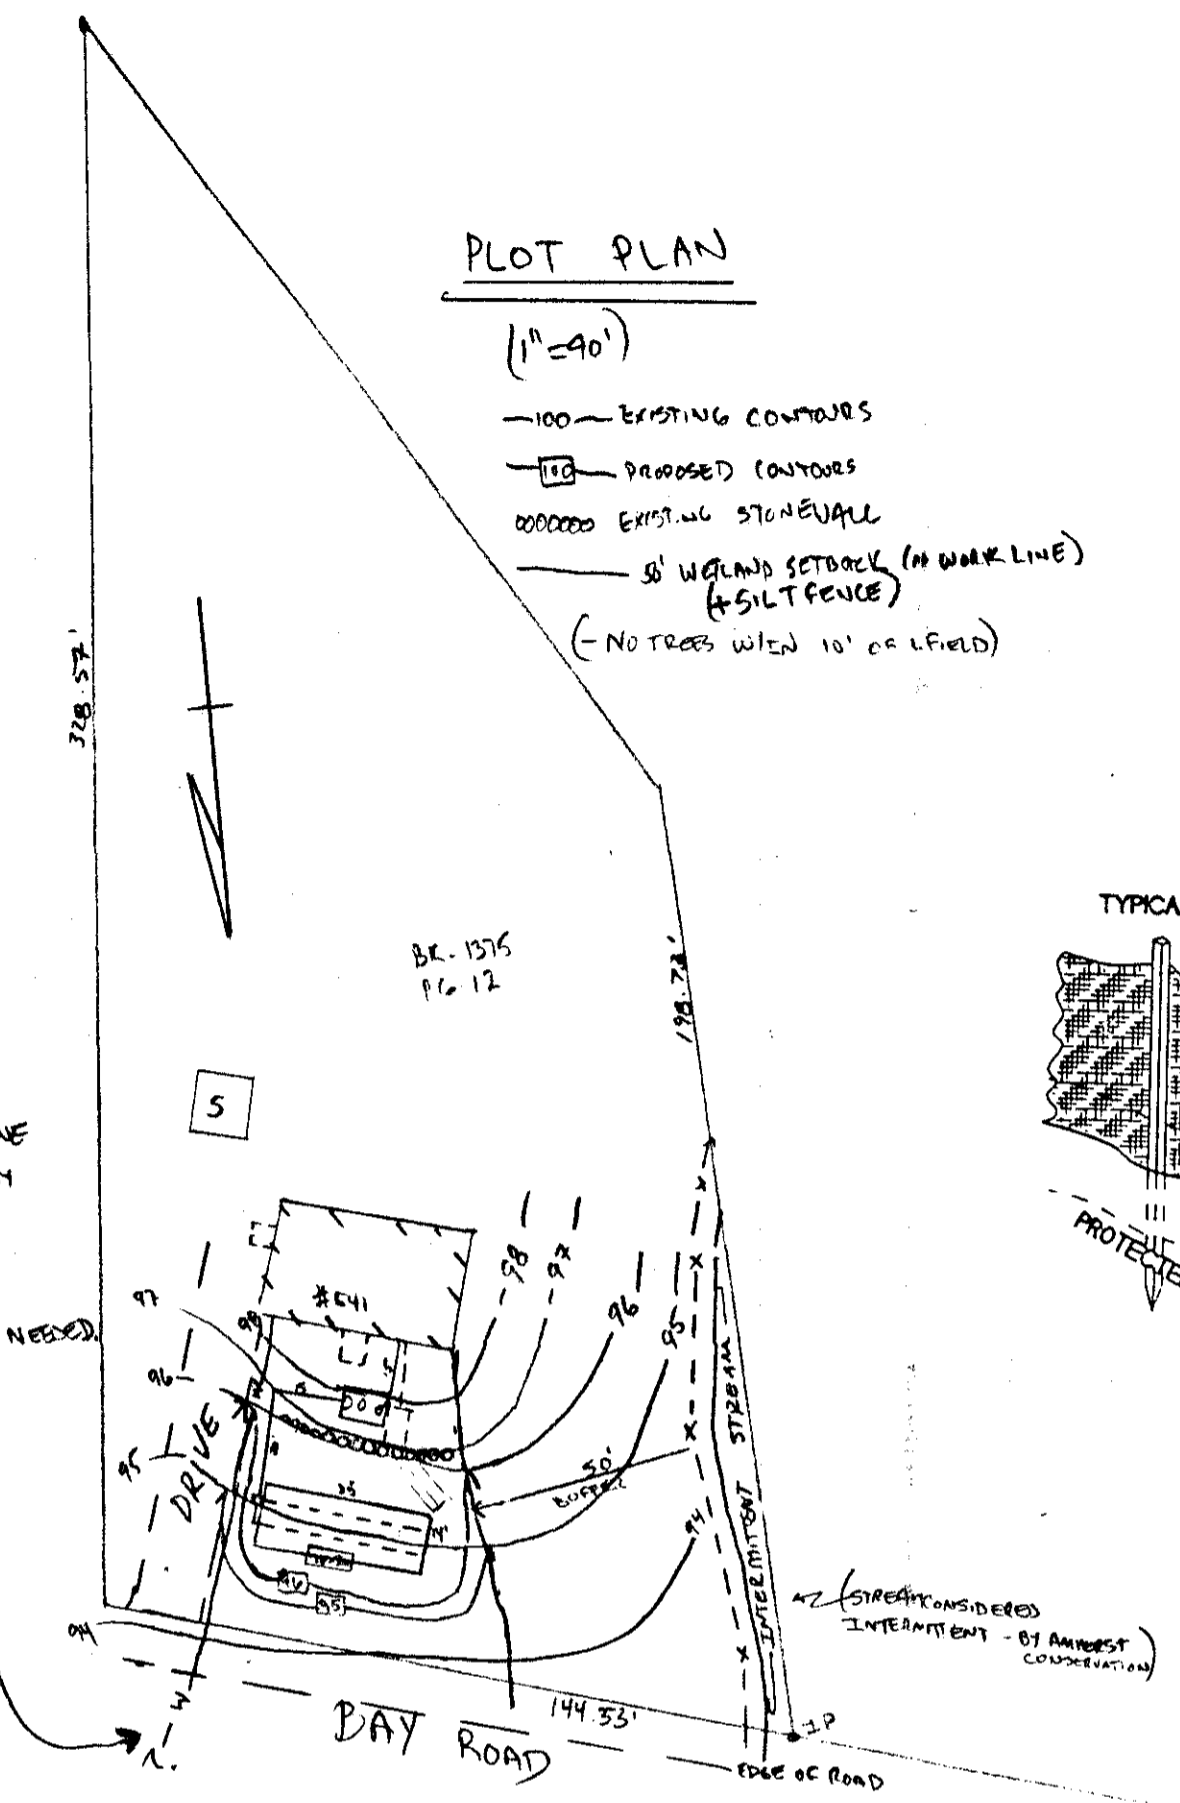 PLOT PLAN
(1"=40')
—100— EXISTING CONTOURS
—100— PROPOSED CONTOURS
EXISTING STONEWALL
50' WETLAND SETBACK (NO WORK LINE)
(+ SILT FENCE)
(- NO TREES W/IN 10' OF L.FIELD)
328.57'
BK. 1375
PG. 12
198.73'
TYPICA
PROTECTE
S
NEEDED.
#641
98
97
96
95
97
98
96
95
DRIVE
35
50'
BUFFER
94
96
95
94
INTERMITTENT STREAM
(STREAM CONSIDERED
INTERMITTENT - BY AMHERST
CONSERVATION)
W
BAY ROAD
144.53'
IP
EDGE OF ROAD